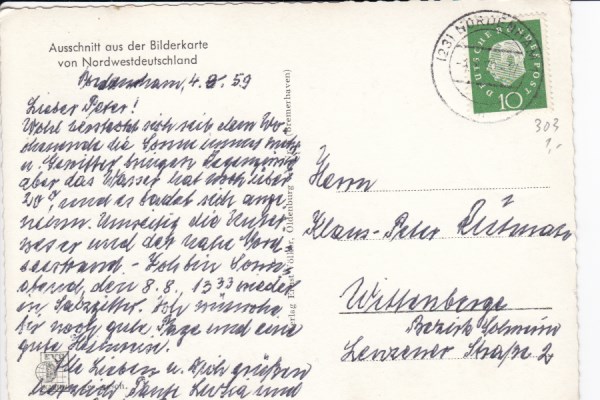 Ausschnitt aus der Bilderkarte
von Nordwestdeutschland
4. 8. 59
Lieber Peter!
Wohl versteckt sich seit dem Wo-
chenende die Sonne immer mehr
u. Gewitter bringen
aber das Wasser hat noch über
20° und es badet sich ange-
nehm.
und der nahe Nord-
seestrand. - Ich bin Sonn-
abend, den 8. 8., 13 33 wieder
in Salzgitter. Ich wünsche
Dir noch gute Tage und eine
gute Heimreise.
Alle Lieben u. Dich grüßen
herzlich Tante und
(23) NORDEN
DEUTSCHE BUNDESPOST
10
303
1,-
Verlag Oldenburg Bremerhaven)
Herrn
Klaus-Peter
Wittenberge
Bezirk Schwerin
Lenzener Straße 2